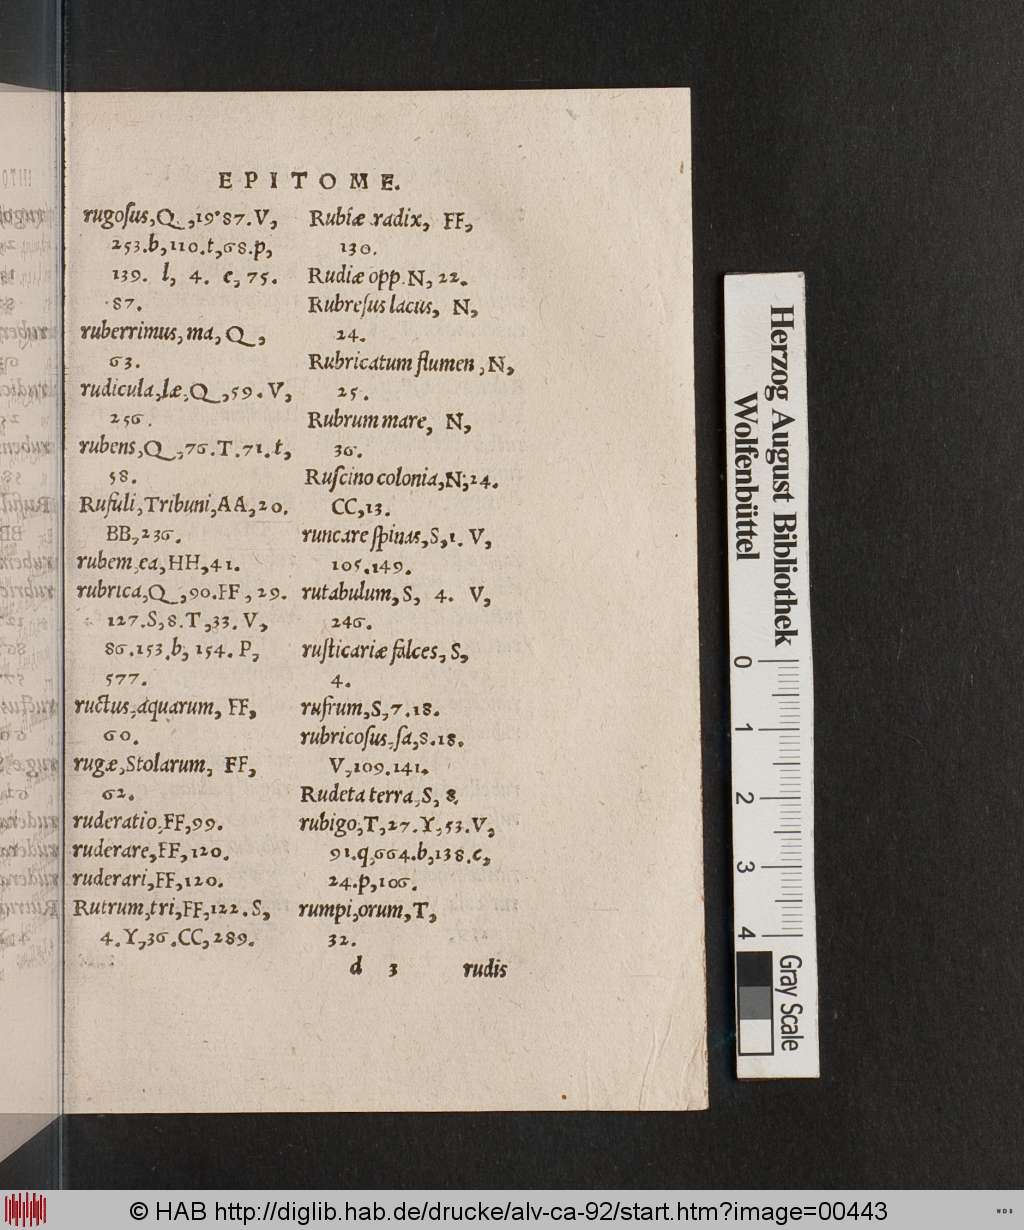 EPITOME.
rugoſus,Q,19.87.V,
253.b,110.t,68.p,
139. l, 4. c, 75.
87.
ruberrimus, ma, Q,
63.
rudicula,læ,Q,59.V,
256.
rubens,Q,76.T.71.t,
58.
Rufuli,Tribuni,AA,20.
BB,236.
rubem,ea,HH,41.
rubrica,Q,90.FF,29.
127.S,8.T,33.V,
86.153.b, 154. P,
577.
ructus,aquarum, FF,
60.
rugæ,Stolarum, FF,
62.
ruderatio,FF,99.
ruderare,FF,120.
ruderari,FF,120.
Rutrum,tri,FF,122.S,
4.Y,36.CC,289.
Rubiæ radix, FF,
130.
Rudiæ opp.N, 22.
Rubreſus lacus, N,
24.
Rubricatum flumen, N,
25.
Rubrum mare, N,
36.
Ruſcino colonia,N,24.
CC,13.
runcare ſpinas,S,1. V,
105.149.
rutabulum,S, 4. V,
246.
ruſticariæ falces, S,
4.
rufrum,S,7.18.
rubricoſus,ſa,8.18.
V,109.141.
Rudeta terra, S, 8.
rubigo,T,27.Y,53.V,
91.q,664.b,138.c,
24.p,106.
rumpi,orum,T,
32.
d 3 rudis
Herzog August Bibliothek
Wolfenbüttel
0 1 2 3 4
Gray Scale
© HAB http://diglib.hab.de/drucke/alv-ca-92/start.htm?image=00443